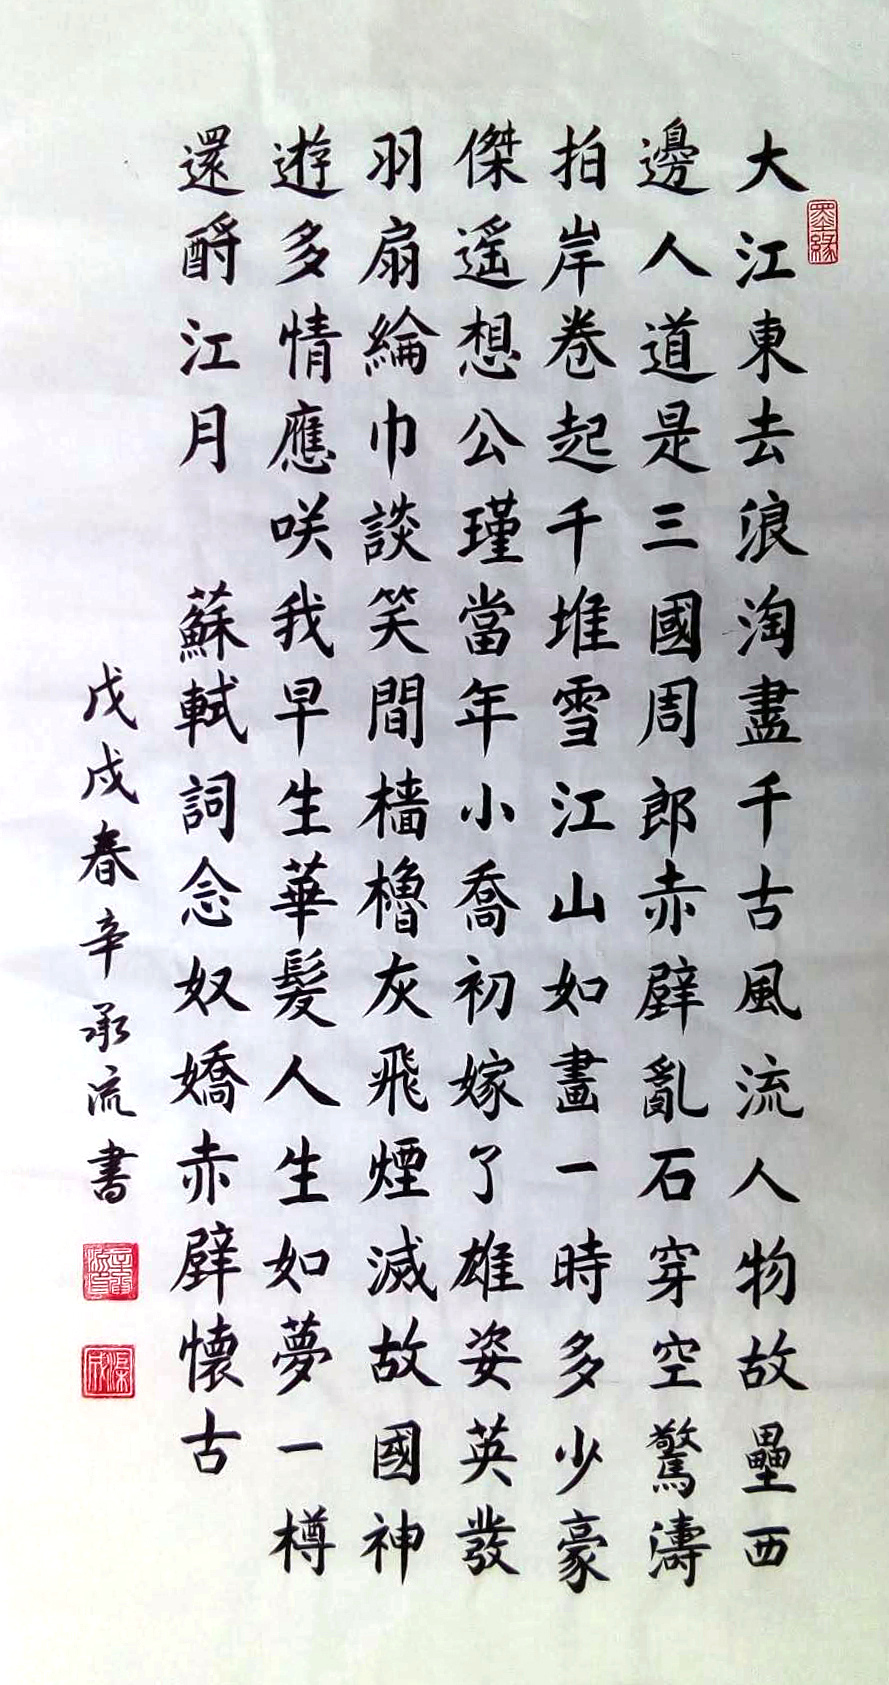 墨緣
大江東去浪淘盡千古風流人物故壘西
邊人道是三國周郎赤壁亂石穿空驚濤
拍岸卷起千堆雪江山如畫一時多少豪
傑遙想公瑾當年小喬初嫁了雄姿英發
羽扇綸巾談笑間檣櫓灰飛煙滅故國神
遊多情應咲我早生華髮人生如夢一樽
還酹江月 蘇軾詞念奴嬌赤壁懷古
戊戌春辛承流書